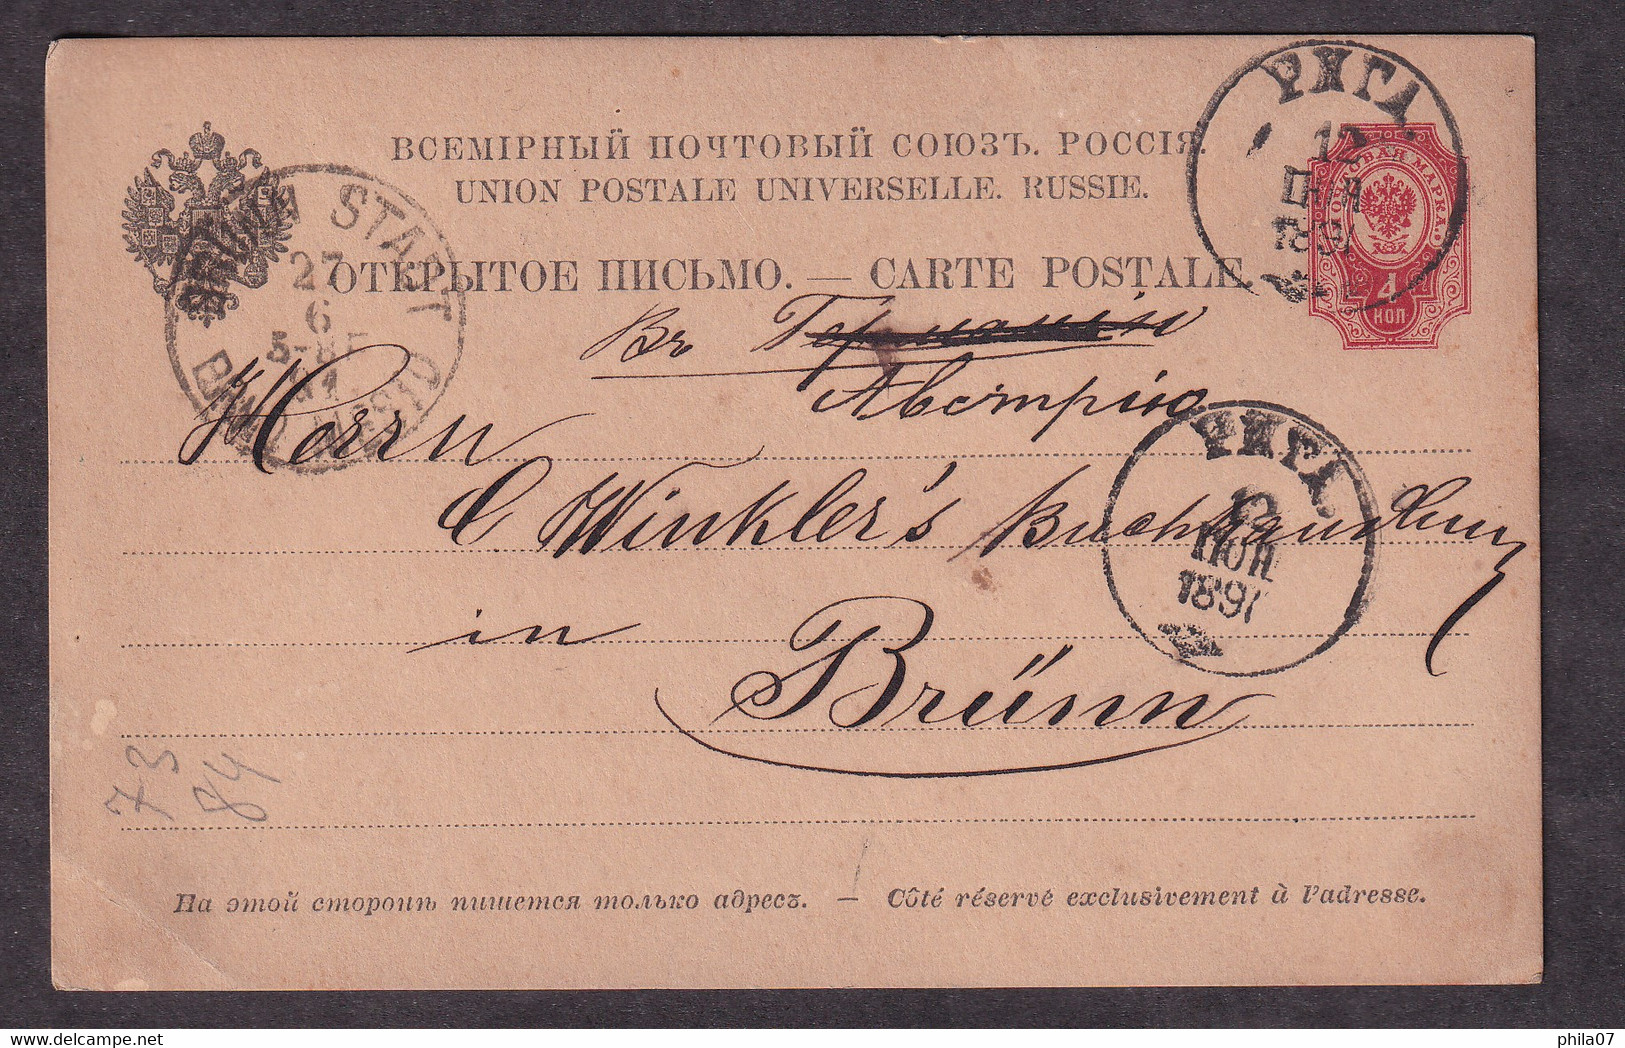 ВСЕМІРНЫЙ ПОЧТОВЫЙ СОЮЗЪ. РОССІЯ.
UNION POSTALE UNIVERSELLE. RUSSIE.
ОТКРЫТОЕ ПИСЬМО. — CARTE POSTALE.
РИГА
12
1891
ПОЧТОВАЯ МАРКА.
4
КОП
BRÜNN STADT
27
6
91
BRNO MĚSTO
Въ Германію
Австрію
Herrn
C Winkler's Buchhandlung
РИГА
12
1891
in Brünn
73
84
На этой сторонѣ пишется только адресъ. — Côté réservé exclusivement à l'adresse.
phila07